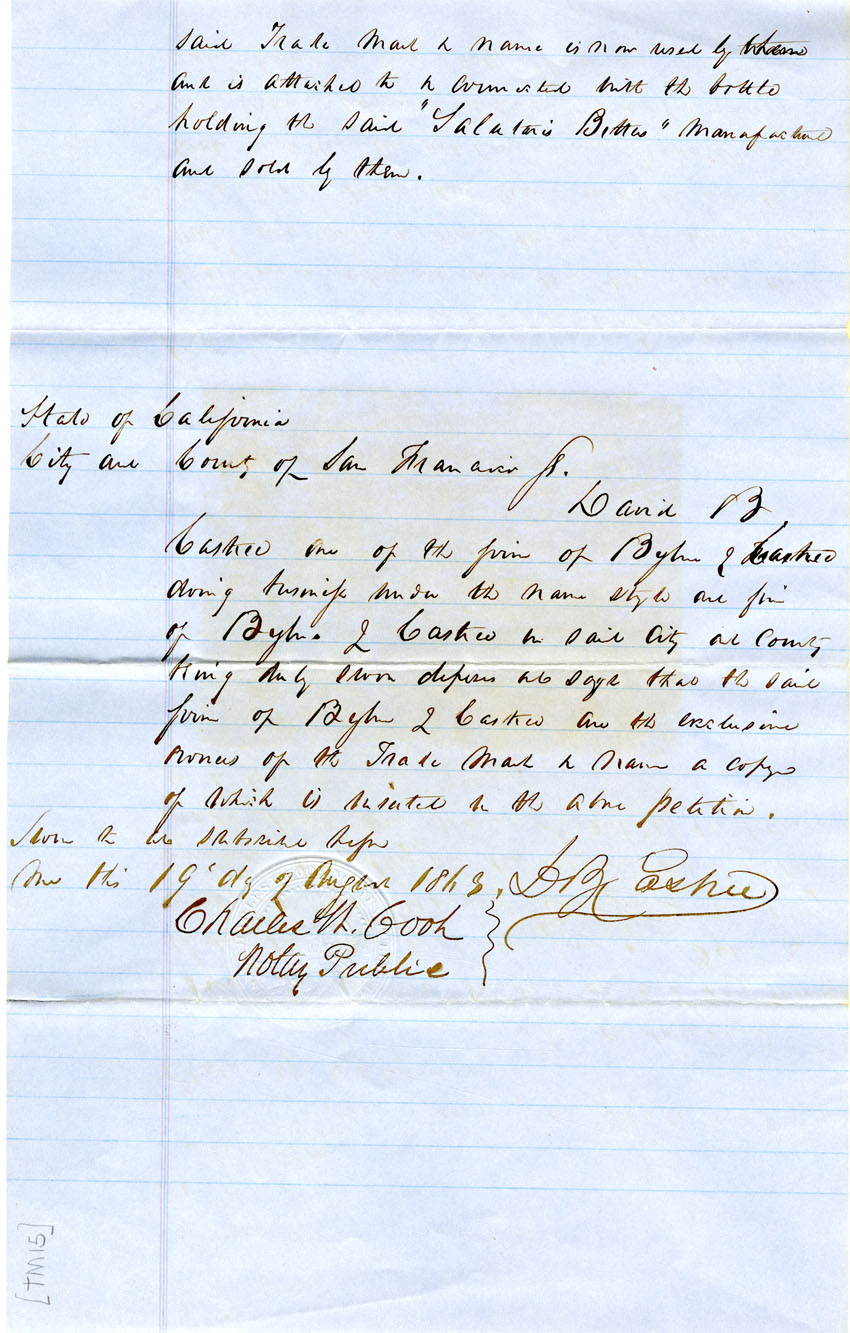 said Trade Mark & name is now used by them
and is attached to & connected with the bottle
holding the said "Salutaris Bitters" Manufactured
and sold by them.
State of California
City and County of San Francisco ss.
David B.
Castree one of the firm of Byrne & Castree
doing business under the name style and firm
of Byrne & Castree in said City and County
being duly sworn deposes and says that the said
firm of Byrne & Castree are the exclusive
owners of the Trade Mark & Name a copy
of which is inserted in the above petition.
Sworn to and subscribed before
me this 19th day of August 1863.
D B Castree
Charles H. Cook
Notary Public
[TM15]